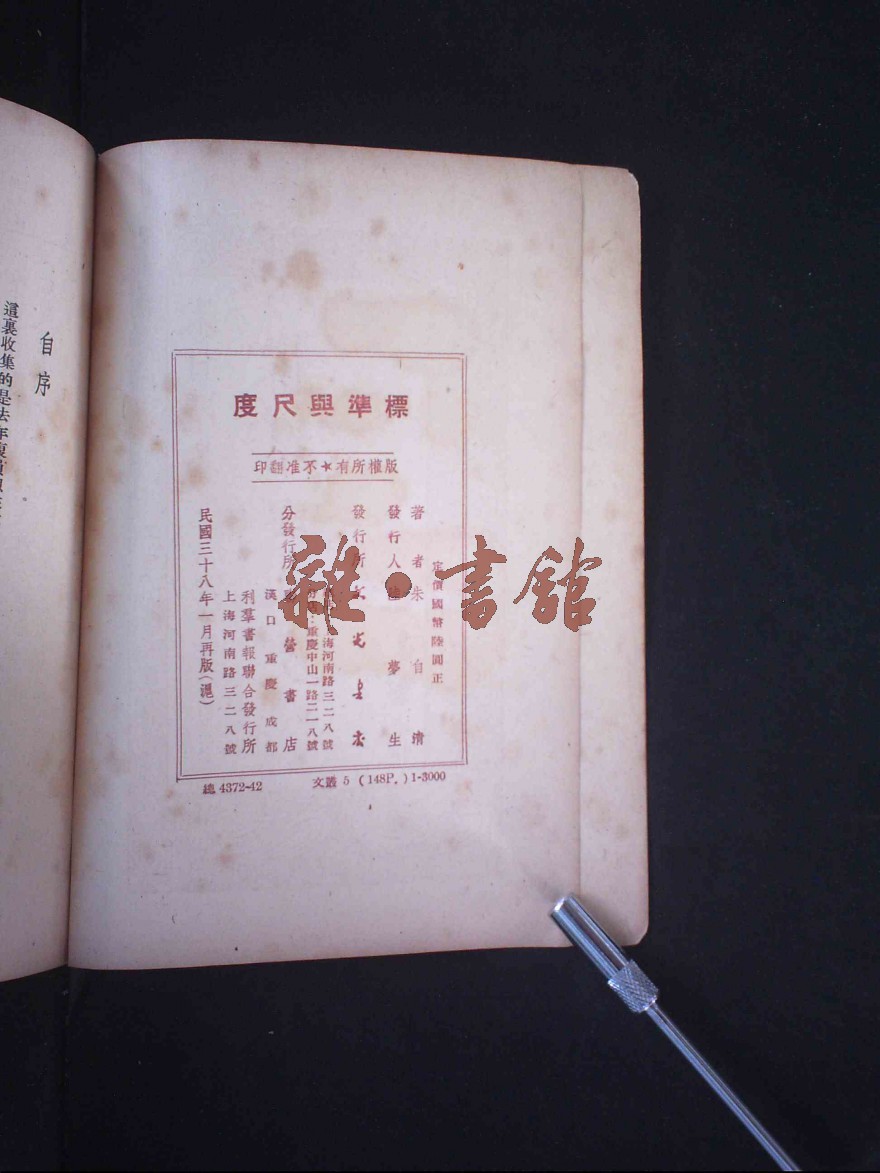 標準與尺度
版權所有★不准翻印
定價國幣陸圓正
著者朱自清
發行人陸夢生
發行所文光書店
上海河南路三二八號
重慶中山一路二一八號
分發行所聯營書店
漢口重慶成都
利羣書報聯合發行所
上海河南路三二八號
民國三十八年一月再版(滬)
總 4372-42
文叢 5 (148P.) 1-3000
自序
這裏收集的是去年復員
雜·書館